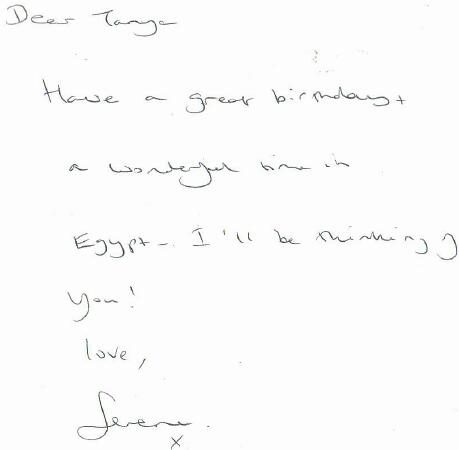 Dear Tanya
Have a great birthday +
a wonderful time in
Egypt - I'll be thinking of
you!
love,
Serena.
x